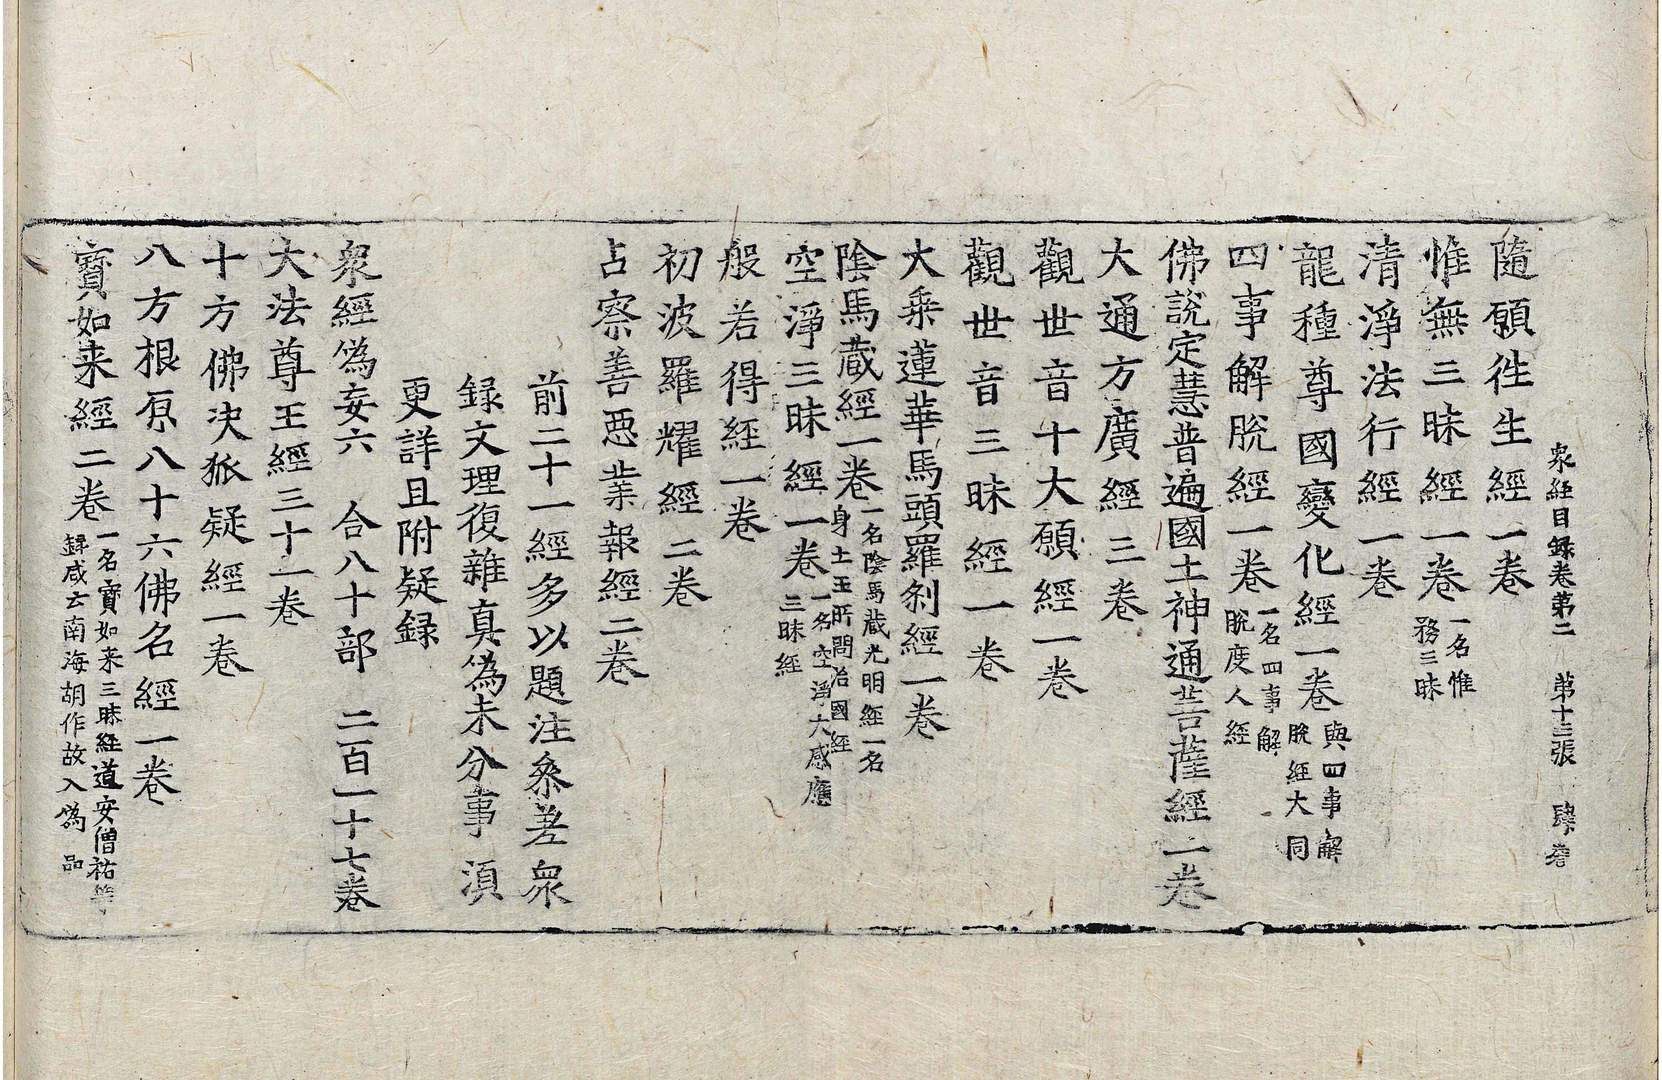 衆経目録卷第二　第十三張　肆号
隨願往生經一卷
惟無三昧經一卷一名惟務三昧
清淨法行經一卷
龍種尊國變化經一卷與四事解脫經大同
四事解脫經一卷一名四事解脫度人經
佛說定慧普遍國土神通菩薩經一卷
大通方廣經三卷
觀世音十大願經一卷
觀世音三昧經一卷
大乗蓮華馬頭羅剎經一卷
陰馬蔵經一卷一名陰馬蔵光明經一名身土王所問治國經
空淨三昧經一卷一名空淨大感應三昧經
般若得經一卷
初波羅耀經二卷
占察善惡業報經二卷
前二十一經多以題注叅差衆
録文理復雜真偽未分事須
更詳且附疑録
衆經偽妄六　合八十部　二百一十七卷
大法尊王經三十一卷
十方佛決狐疑經一卷
八方根原八十六佛名經一卷
寶如来經二卷一名寶如来三昧經道安僧祐等録咸云南海胡作故入偽品